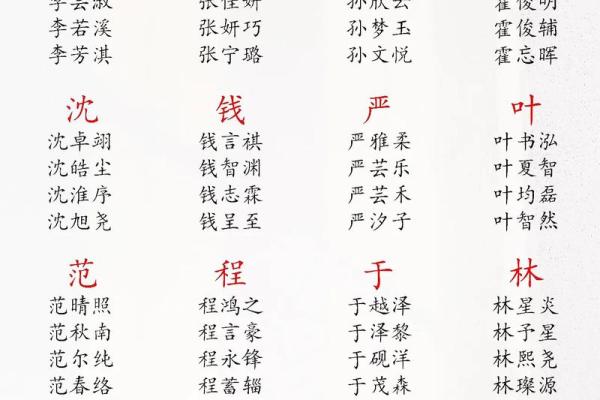 李芸淑 张佳妍 孙欣云 霍俊明
李若溪 张妍巧 孙梦玉 霍俊辅
李芳淇 张宁璐 孙文悦 霍忘晖
沈 钱 严 叶
沈卓翊 钱言祺 严雅柔 叶书泓
沈皓尘 钱智渊 严芸乐 叶夏智
沈淮序 钱志霖 严芸禾 叶均磊
沈旭尧 钱呈至 严汐子 叶智然
范 程 于 林
范晴照 程鸿之 于越泽 林星炎
范秋南 程言豪 于泽黎 林予星
范尔纯 程永锋 于砚洋 林熙尧
范春络 程蓄辎 于茂森 林璨源